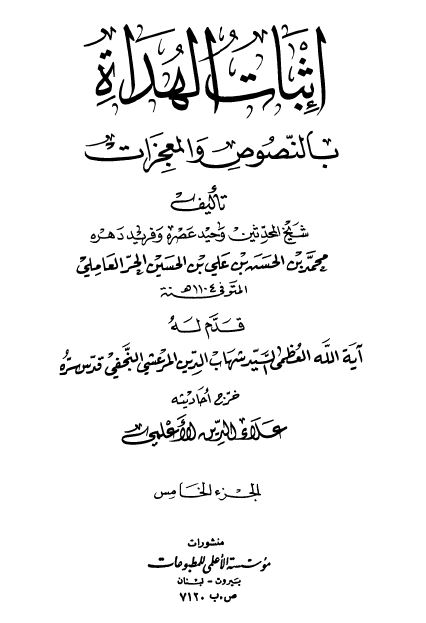 إثبات الهداة
بالنصوص والمعجزات
تأليف
شيخ المحدثين وحيد عصره وفريد دهره
محمد بن الحسن بن علي بن الحسين الحر العاملي
المتوفى سنة ١١٠٤هـ
قدم له
آية الله العظمى السيد شهاب الدين المرعشي النجفي قدس سره
خرج أحاديثه
علاء الدين الأعلمي
الجزء الخامس
منشورات
مؤسسة الأعلمي للمطبوعات
بيروت - لبنان
ص.ب ٧١٢٠